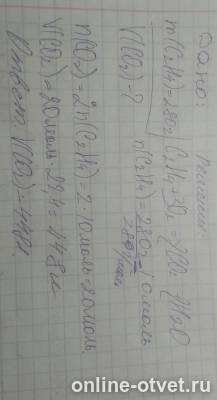 Дано: Решение:
m(C2H4)=280г C2H4+3O2=2CO2+2H2O
V(CO2)-? n(C2H4)=280г/28г/моль=10моль
n(CO2)=2n(C2H4)=2·10моль=20моль
V(CO2)=20моль·22,4=448л
Ответ: V(CO2)=448л.
online-otvet.ru